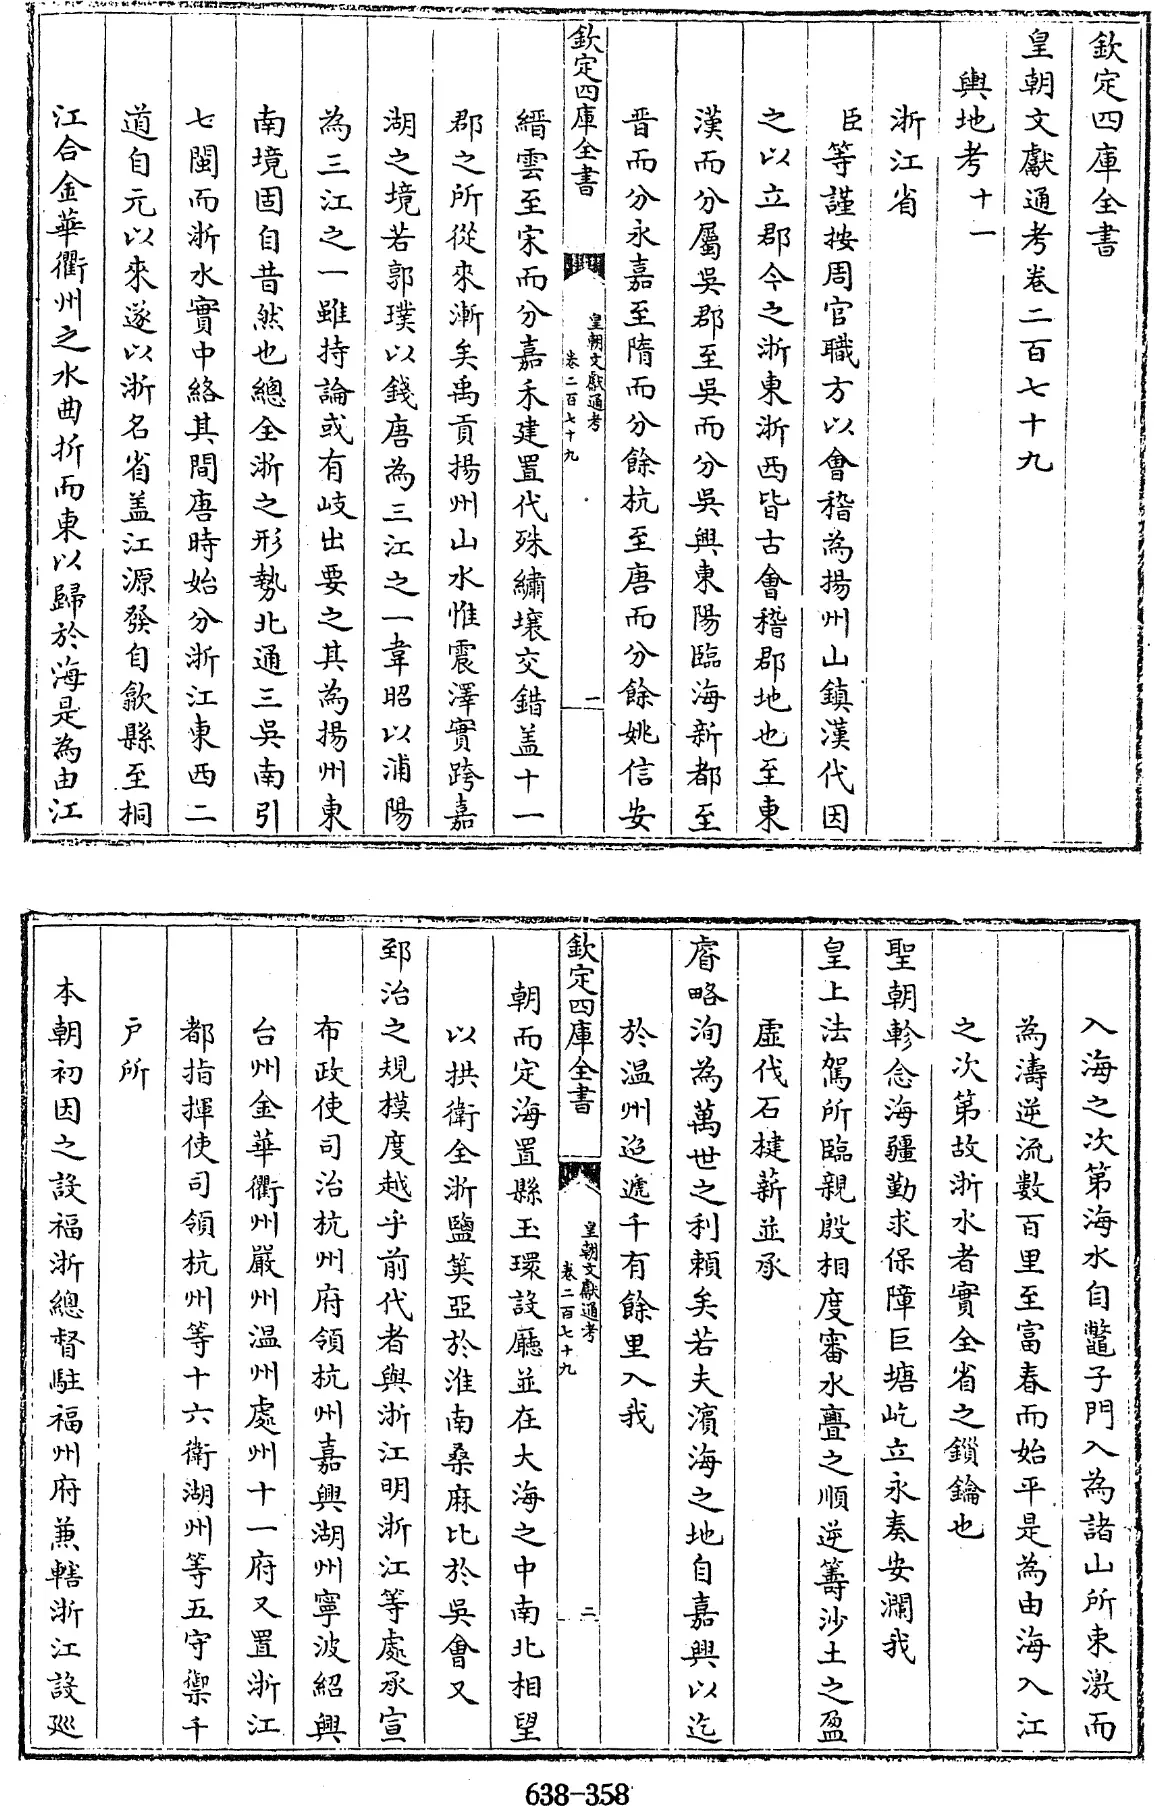 欽定四庫全書
皇朝文獻通考卷二百七十九
輿地考十一
浙江省
臣等謹按周官職方以會稽為揚州山鎮漢代因
之以立郡今之浙東浙西皆古會稽郡地也至東
漢而分屬吳郡至吳而分吳興東陽臨海新都至
晉而分永嘉至隋而分餘杭至唐而分餘姚信安
欽定四庫全書
皇朝文獻通考
卷二百七十九
一
縉雲至宋而分嘉禾建置代殊繡壤交錯盖十一
郡之所從來漸矣禹貢揚州山水惟震澤實跨嘉
湖之境若郭璞以錢唐為三江之一韋昭以浦陽
為三江之一雖持論或有岐出要之其為揚州東
南境固自昔然也總全浙之形勢北通三吳南引
七閩而浙水實中絡其間唐時始分浙江東西二
道自元以來遂以浙名省盖江源發自歙縣至桐
江合金華衢州之水曲折而東以歸於海是為由江
入海之次第海水自鼈子門入為諸山所束激而
為濤逆流數百里至富春而始平是為由海入江
之次第故浙水者實全省之鎖鑰也
聖朝軫念海疆勤求保障巨塘屹立永奏安瀾我
皇上法駕所臨親殷相度審水亹之順逆籌沙土之盈
虛伐石楗薪並承
睿略洵為萬世之利賴矣若夫濱海之地自嘉興以迄
於温州迢遞千有餘里入我
欽定四庫全書
皇朝文獻通考
卷二百七十九
二
朝而定海置縣玉環設廳並在大海之中南北相望
以拱衛全浙鹽筴亞於淮南桑麻比於吳會又
郅治之規模度越乎前代者與浙江明浙江等處承宣
布政使司治杭州府領杭州嘉興湖州寧波紹興
台州金華衢州嚴州温州處州十一府又置浙江
都指揮使司領杭州等十六衛湖州等五守禦千
戶所
本朝初因之設福浙總督駐福州府兼轄浙江設廵
638-358